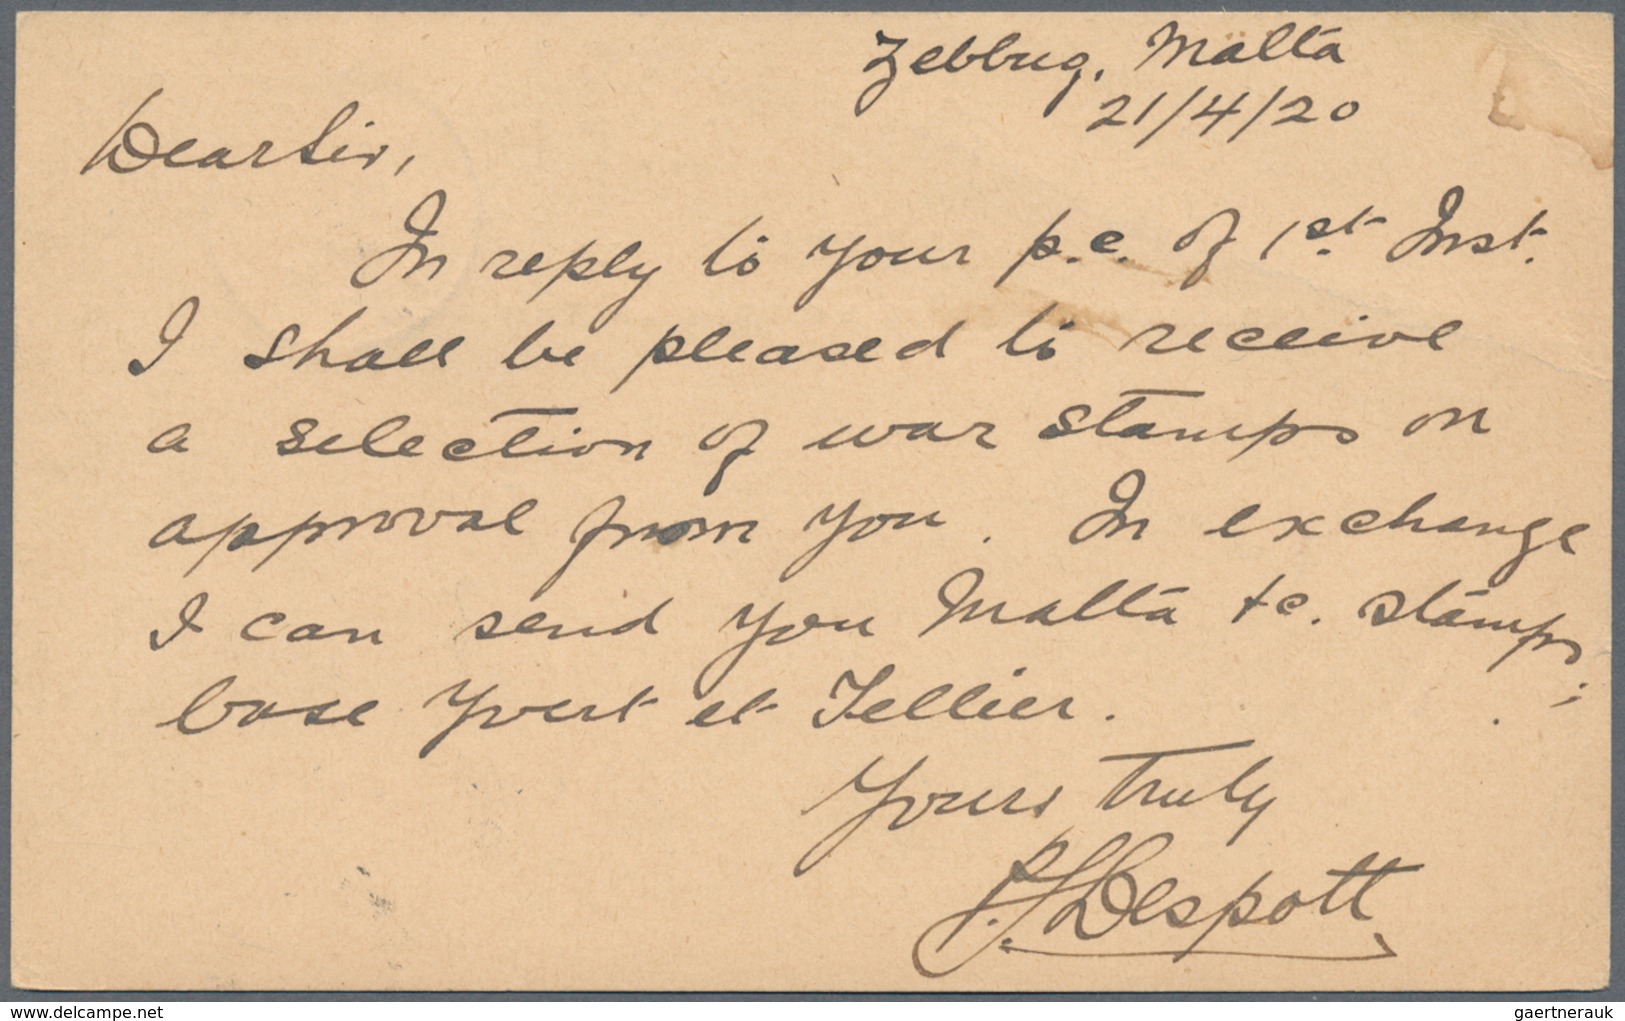 Zebbug, Malta
21/4/20
Dear Sir,
In reply to your p.c. of 1st Inst.
I shall be pleased to receive
a selection of war stamps on
approval from you. In exchange
I can send you Malta &c. stamps;
base Yvert et Tellier.
Yours truly
Despott
delcampe.net
gaertnerauk